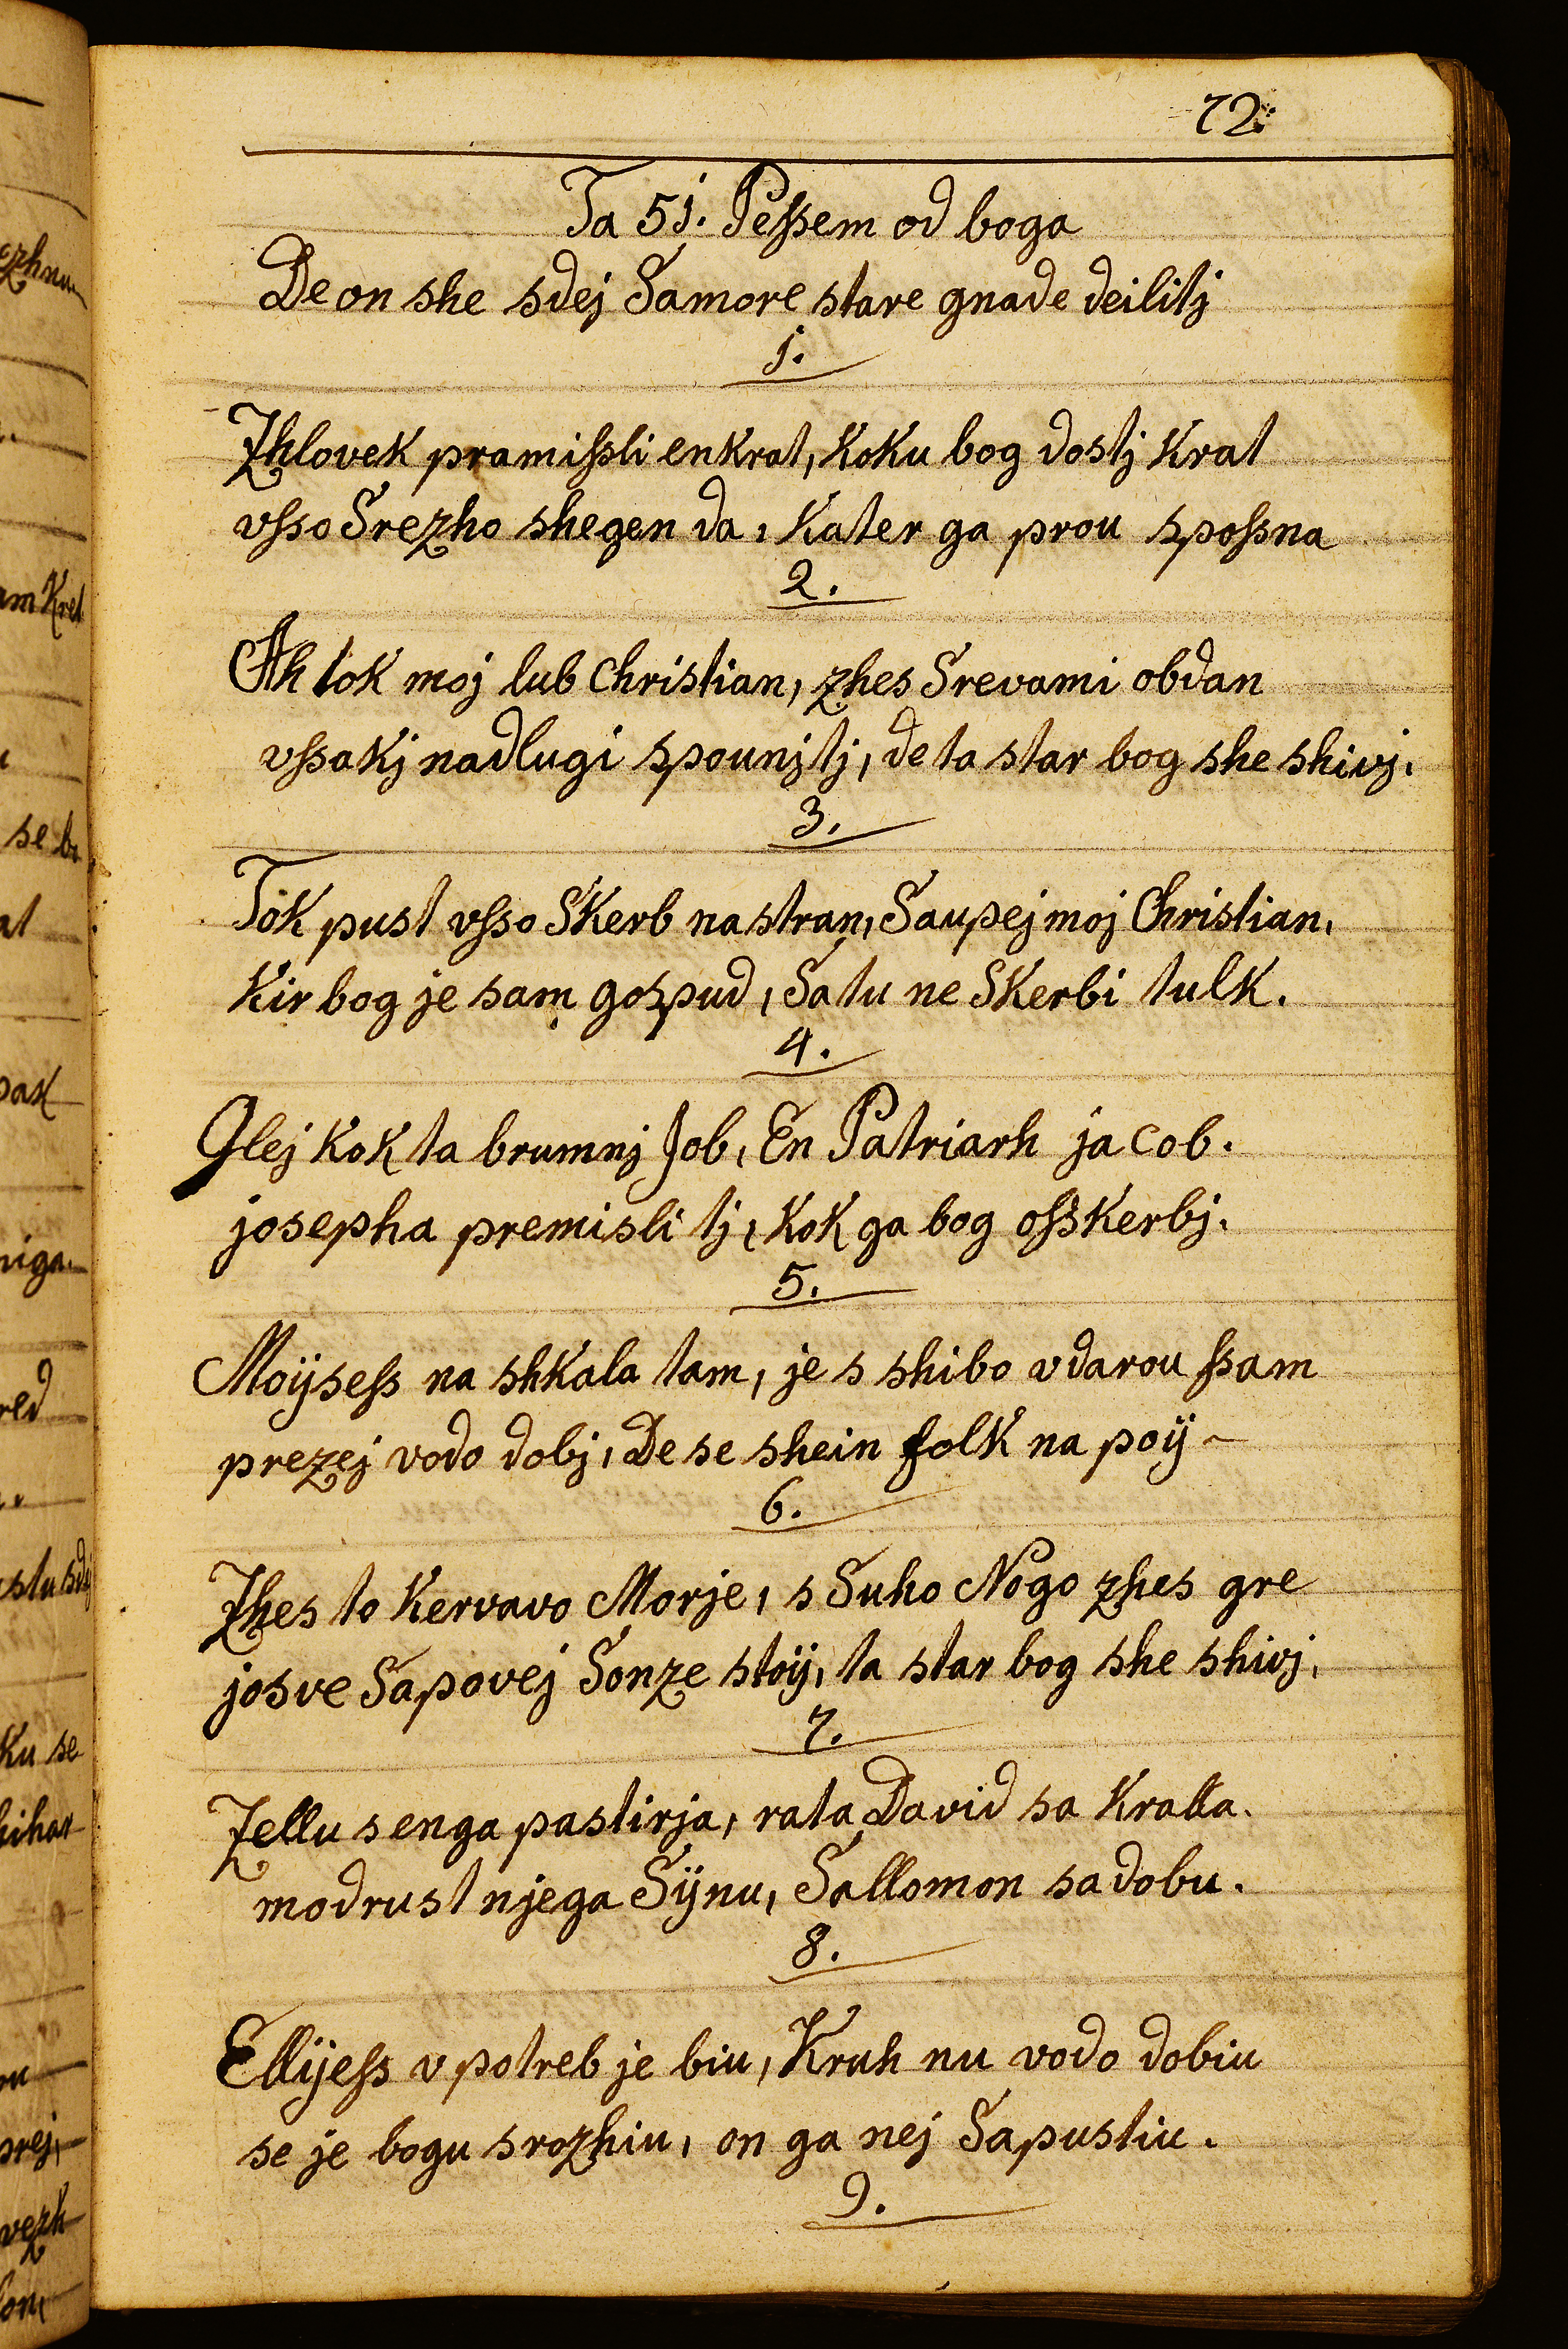 72.
Ta 51. Peſsem od boga
De on she sdej Samore stare gnade deilitj
1.
Zhlovek pramiſsli enkrat, Koku bog dostj Krat
vſso Srezho shegen da, Kater ga prou spoſsna
2.
Ah tok moj lub Christian, zhes Srevami obdan
vſsakj nadlugi spounjtj, de ta star bog she shivj.
3.
Tok pust vſso SKerb na stran, Saupej moj Christian.
Kir bog je sam gospud, Sa tu ne SKerbi tulk.
4.
Glej Kok ta brumnj Job, En Patriarh ja cob.
josepha premisli tj, Kok ga bog oſsKerbj.
5.
Moÿseſs na shKala tam, je s shibo vdarou ſsam
prezej vodo dobj, De se shein folK na poÿ ~
6.
Zhes to Kervavo Morje, s Suho Nogo zhes gre
josve Sapovej Sonze stoÿ, ta star bog she shivj,
7.
Zellu s enga pastirja, rata David sa Kralla.
modrust njega Sÿnu, Sallomon sadobu.
8.
Ellÿeſs v potreb je biu, Kruh nu vodo dobiu
se je bogu srozhiu, on ga nej Sapustiu.
9.